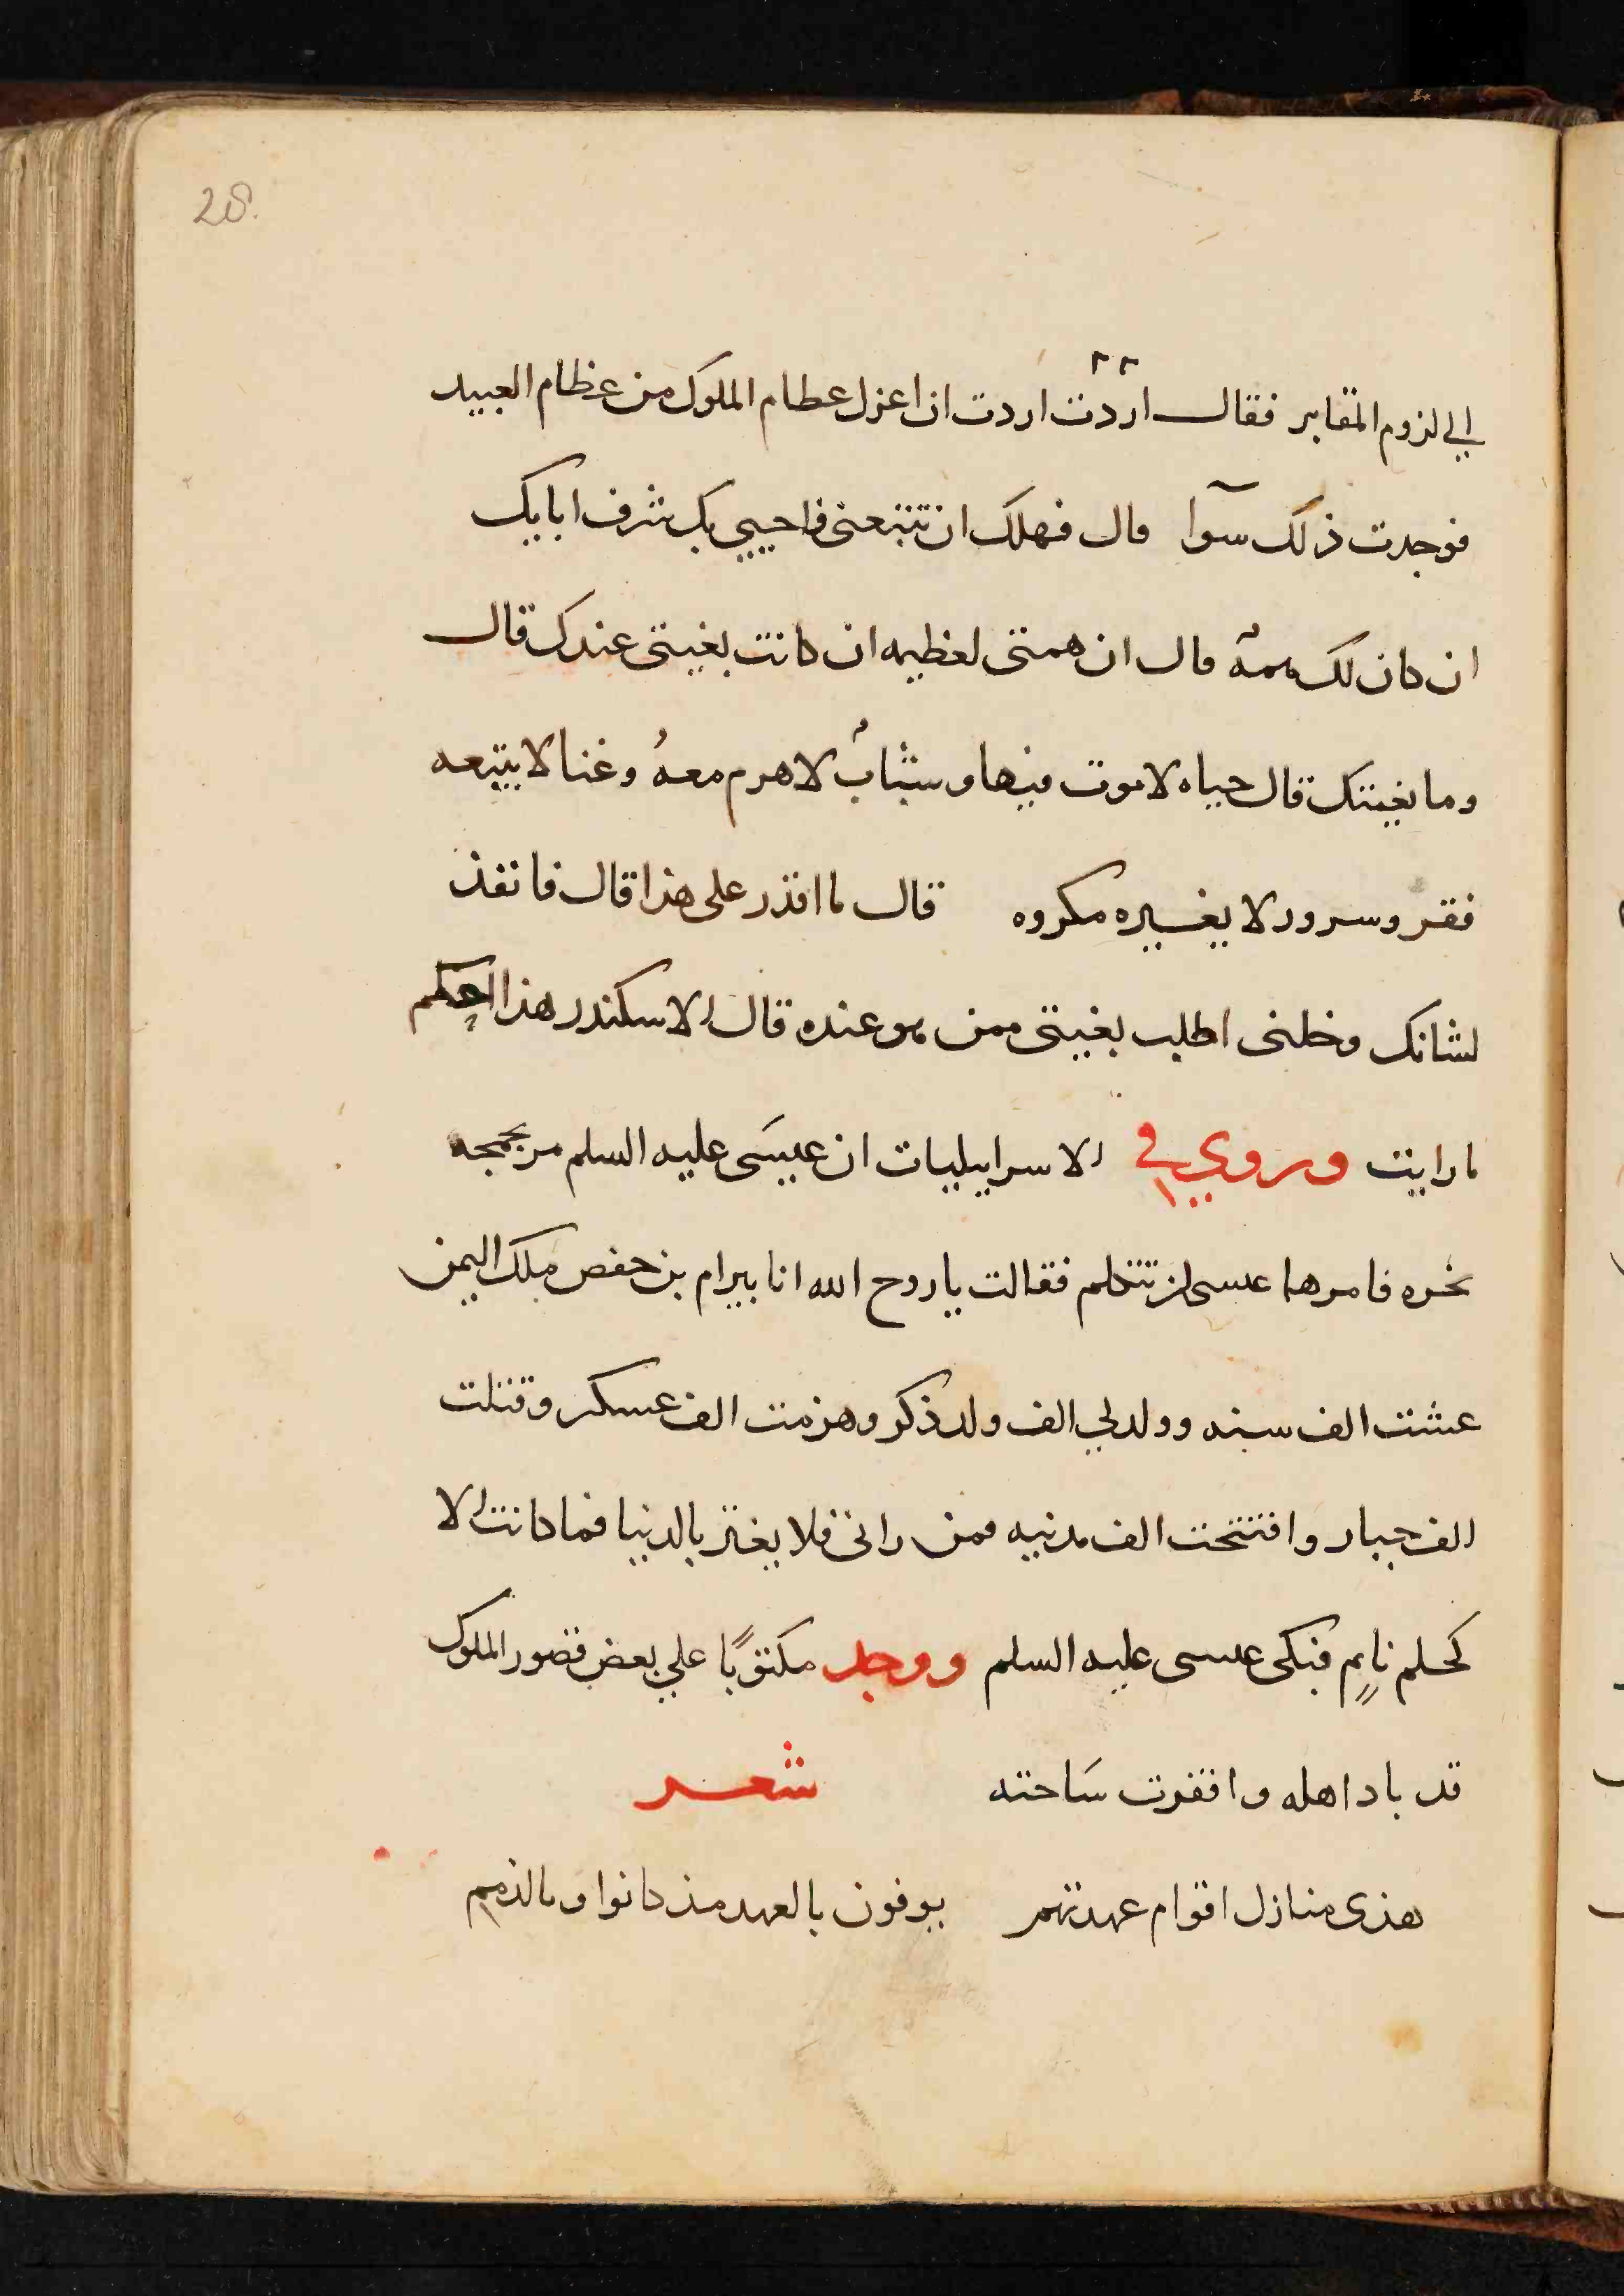 28
الي لزوم المقابر فقال اردت اردت ان اعزل عطام الملوك من عظام العبيد
فوجدت ذلك سوآ قال فهلك ان تتبعنى فاحيي بك شرف ابايك
ان كان لك همة قال ان همتى لعظيمه ان كانت بغيتى عندك قال
وما بغيتك قال حياه لا موت فيها وشباب لا هرم معه وغنا لا يتبعه
فقر وسرور لا يغيره مكروه قال ما اقدر على هذا قال فانفذ
لشانك وخلنى اطلب بغيتى ممن هو عنده قال الاسكندر هذا احكم
ما رايت وروي في الاسراييليات ان عيسَى عليه السلم مر بجمجمه
نخره فامرها عيسى ان تتكلم فقالت يا روح الله انا بيرام بن حفص ملك اليمن
عشت الف سنه وولد لي الف ولد ذكر وهزمت الف عسكر وقتلت
الف جبار وافتتحت الف مدنيه فمن رانى فلا يغتر بالدنيا فما كانت الا
كحلم نايمٍ فبكى عيسى عليه السلم ووجد مكتوبًا علي بعض قصور الملوك
قد باد اهله واقفرت سَاحته شعر
هذى منازل اقوام عهدتهم يوفون بالعهد مذ كانوا وبالذمم